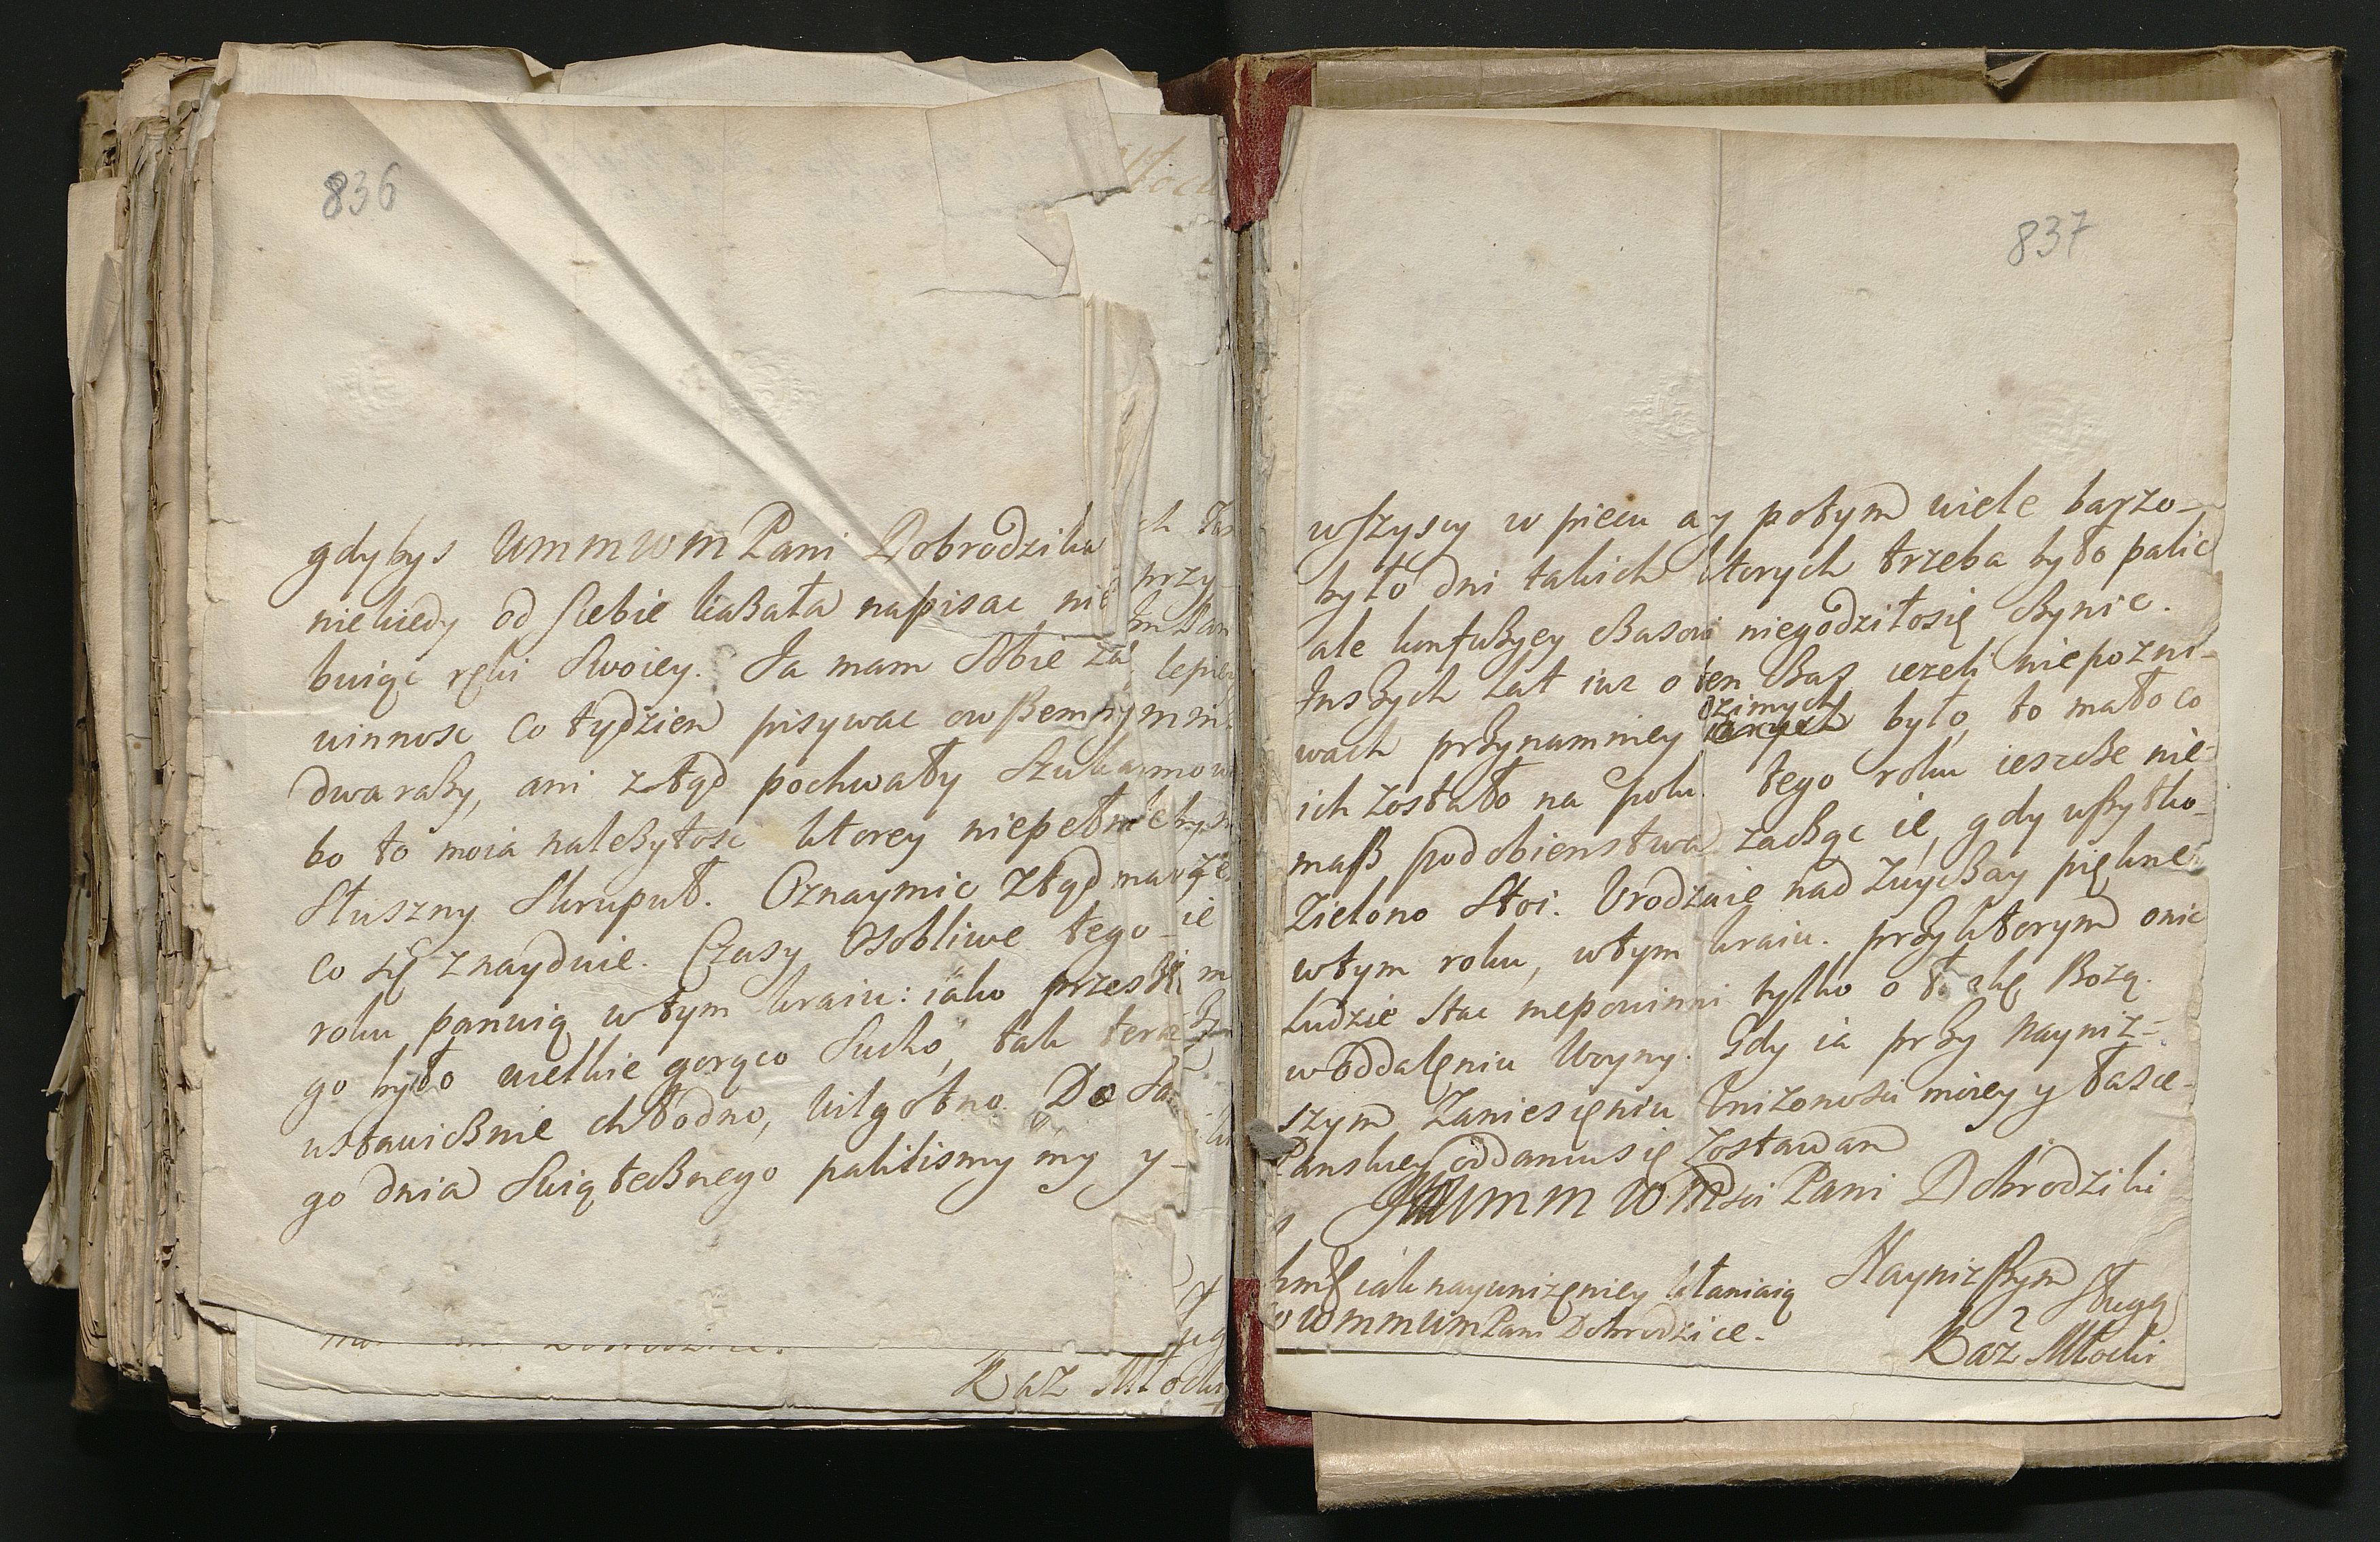 836
gdybys UmmwmPani Dobrodzika
niekiedy od siebie kaßała napisac nie
buiąc ręki Swoiey. Ja mam Sobie za
winnosc co tydzien pisywac owßem y
dwa raßy, ani ztąd pochwały Szukam
bo to moia naleßytosc ktorey niepełnic
Słuszny Skrupuł. Oznaymic ztąd
co się znayduie. Czasy Osobliwe tego
roku panuią wtym kraiu: iako przeszłe
go było wielkie gorąco Sucho, tak teraz
ustawicßnie chłodno, wilgotno. Do Sa
go dnia Swiątecßnego palilismy my y
Kaz Młocki
837
wszyscy w piecu ay potym wiele barzo
było dni takich ktorych trzeba było palic
ale konfußyey cßasowi niegodziłosię cßynic.
Inßych Lat iuz o ten cßas iezeli niepozni-
wach przynamniey ozimych było, to mało co
ich zostało na polu. tego roku ieszcße nie-
maß podobienstwa zacßąc ie, gdy wßytko
Zielono Stoi. Urodzaie nad zwycßay piękne
wtym roku, wtym kraiu. przy ktorym onic
Ludzie Stac niepowinni tylko o łaskę Bozą.
w oddalęniu Woyny. Gdy ia przy nayniz-
szym Zaniesięniu Unizonosci moiey y łasce
Panskiey oddaniusię zostawam
UmmWMsci Pani Dobrodziki
Nayniższym Sługą
Kaz Młocki
iak nayunizęniey kłaniaią
WmmwmPani Dobrodzice.